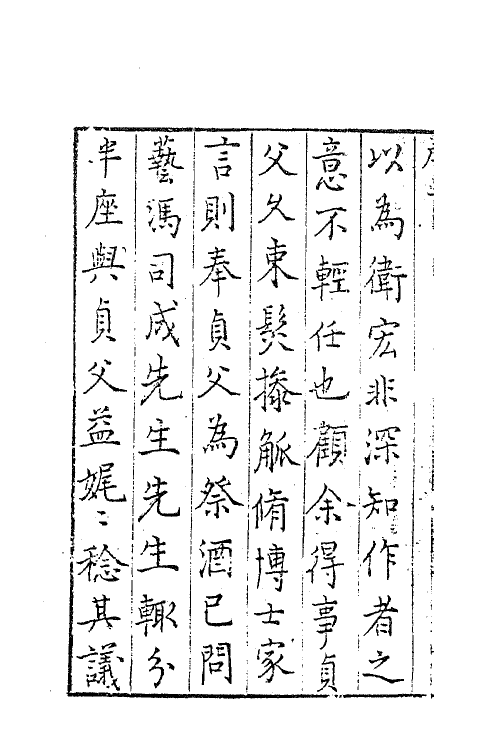 以為衛宏非深知作者之
意不輕任也顧余得事貞
父父束髮搽觚脩博士家
言則奉貞父為祭酒已問
藝馮司成先生先生輙分
半座與貞父益娓〻稔其議